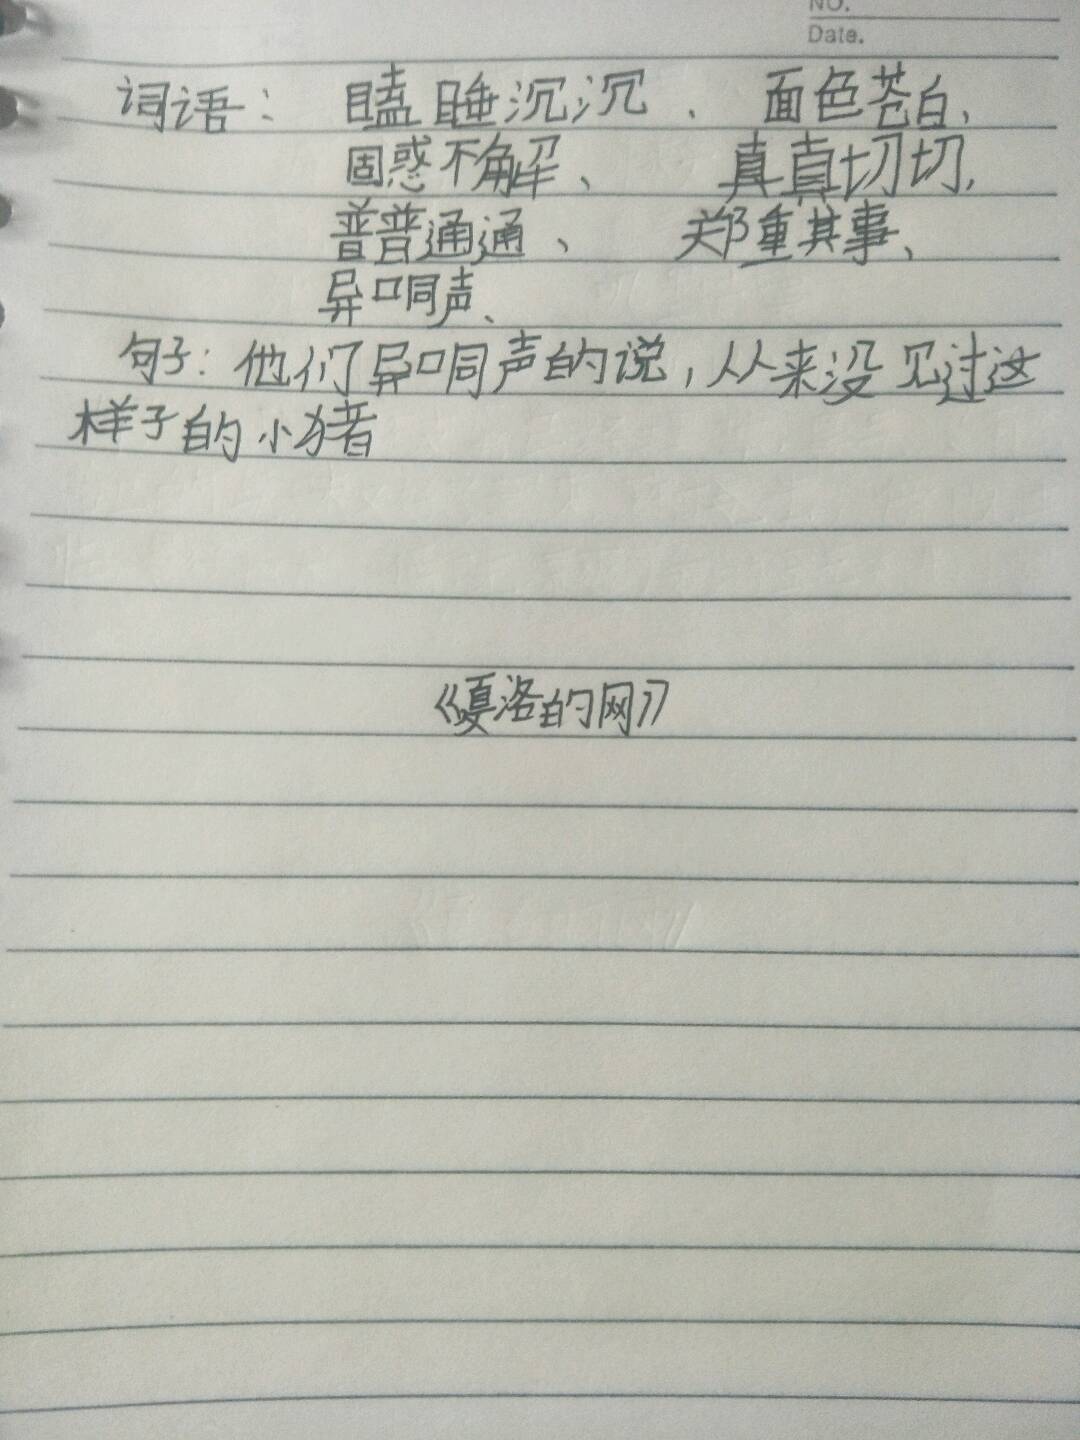 NO.
Date.
词语：瞌睡沉沉、面色苍白、
困惑不解、真真切切、
普普通通、郑重其事、
异口同声、
句子：他们异口同声的说，从来没见过这
样子的小猪
《夏洛的网》